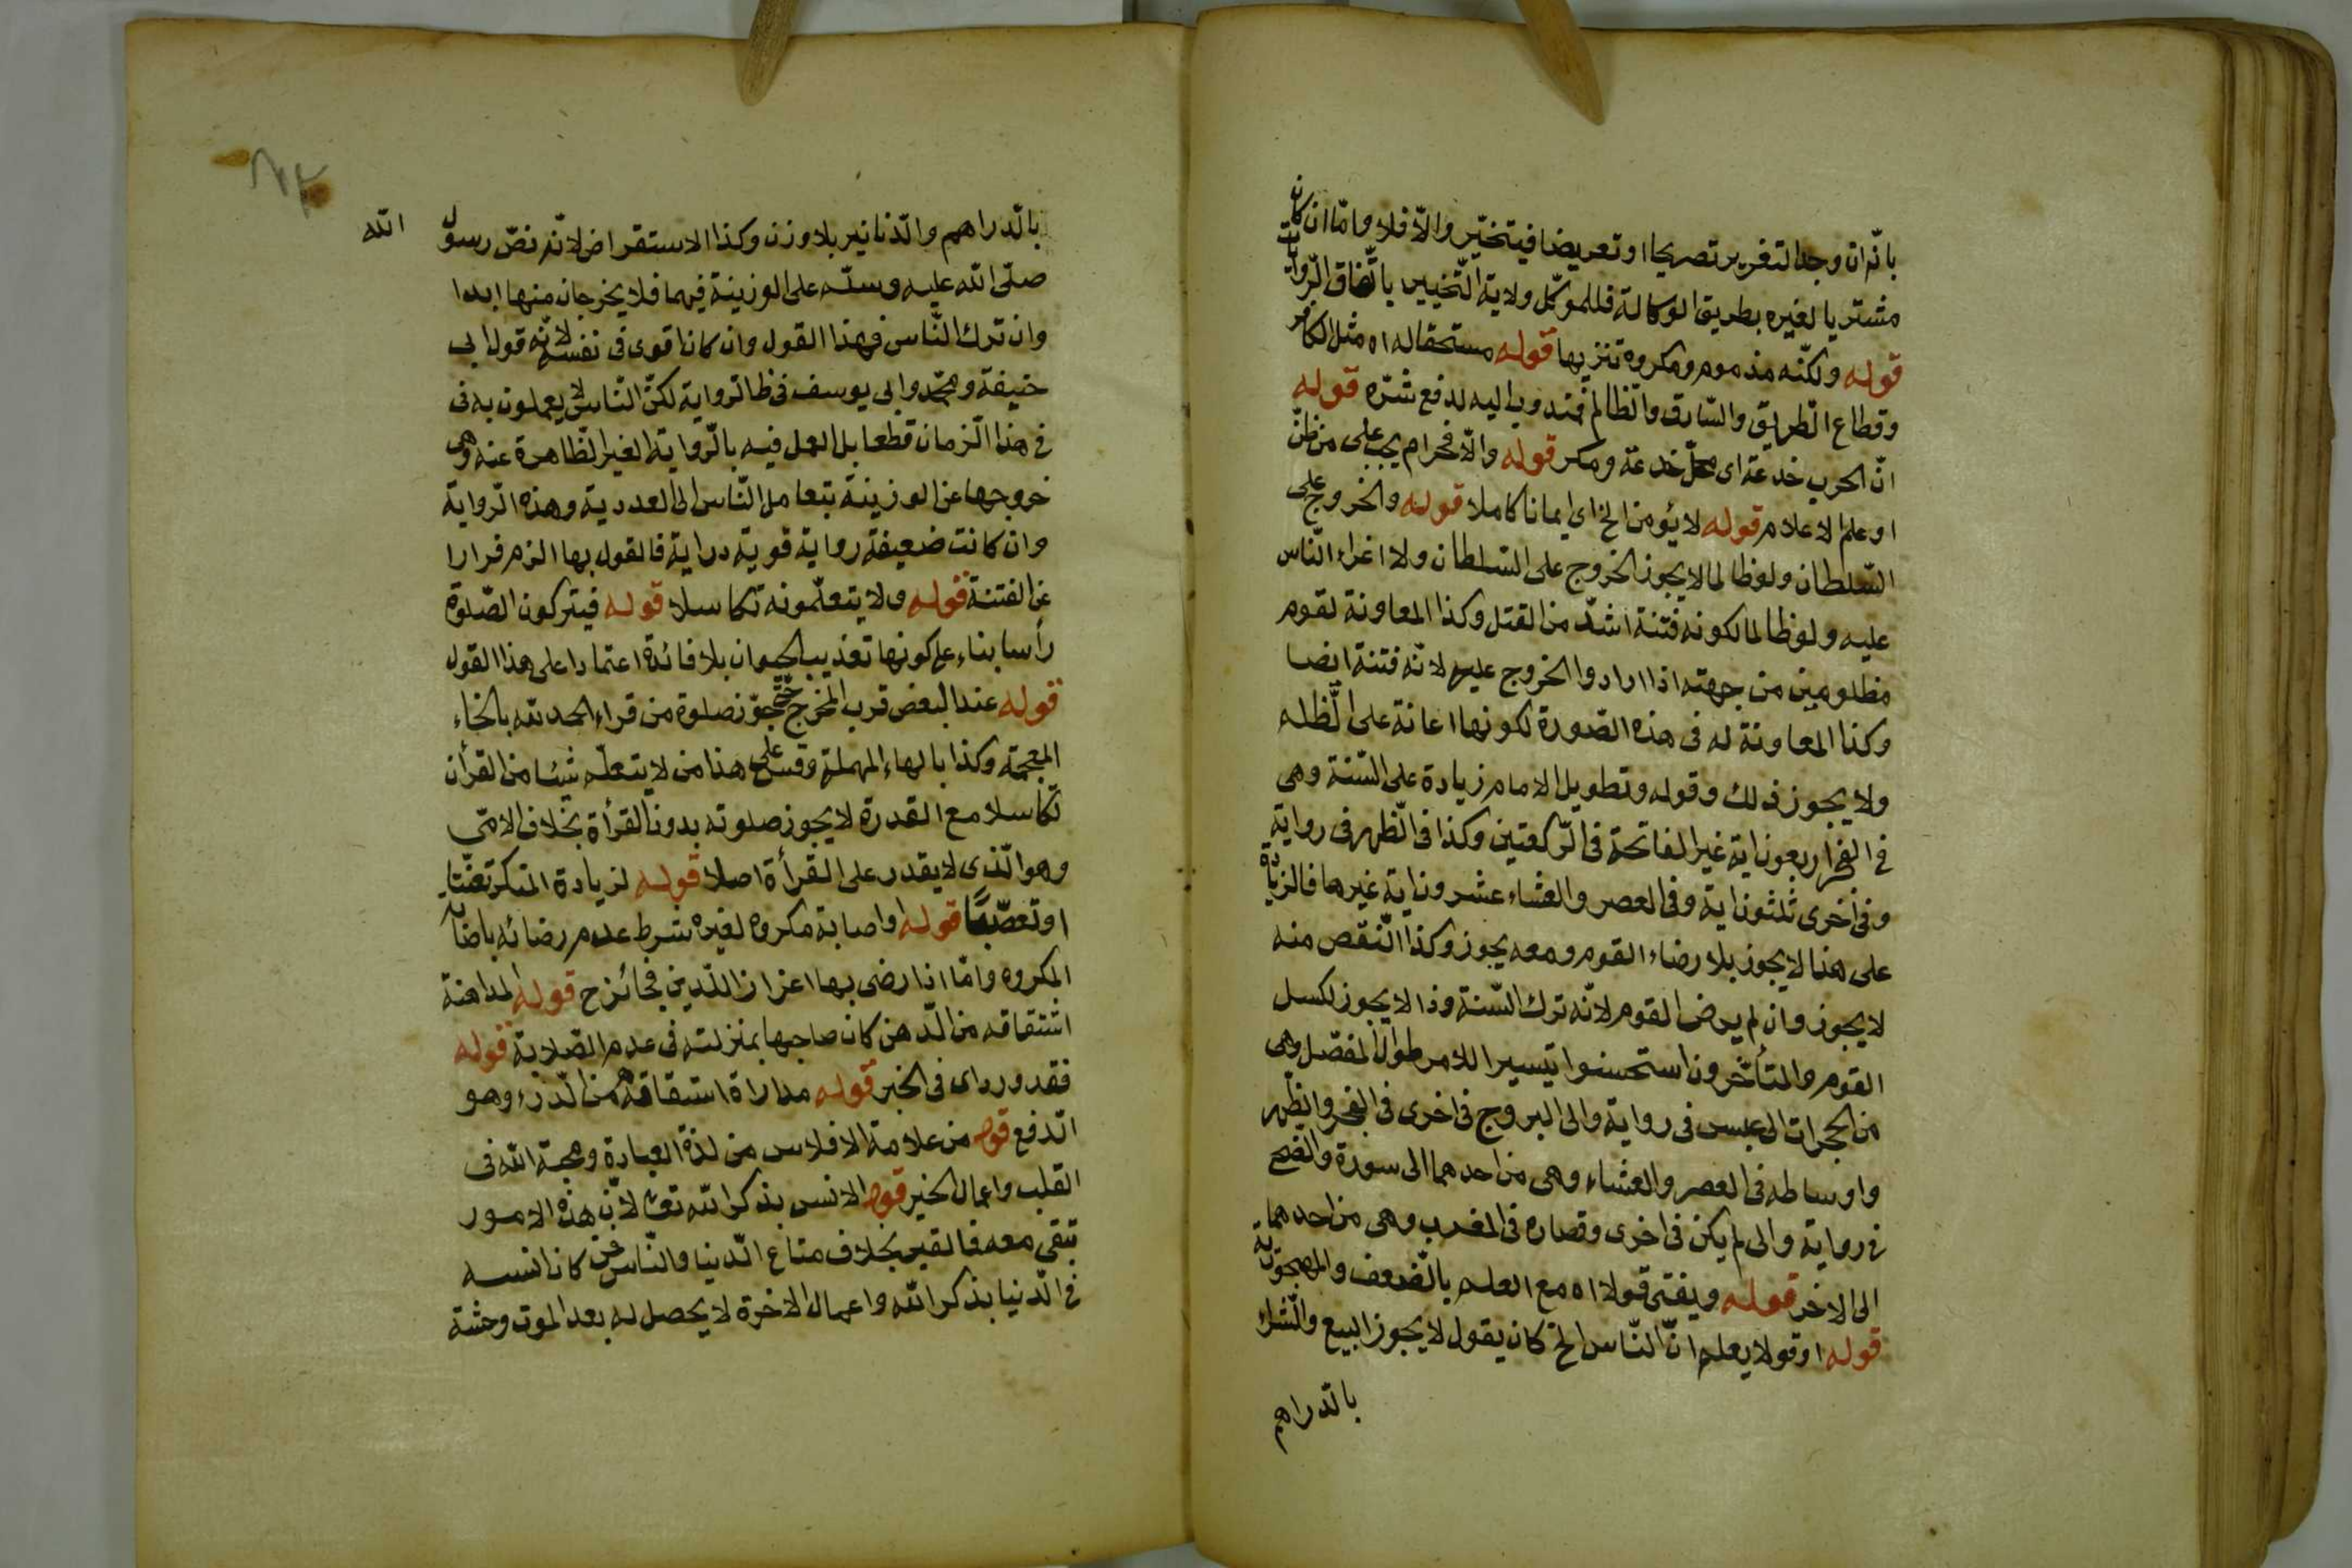 بانّه ان وجد التغرير تصريحا او تعريضا فيتخيّر والّا فلا وامّا ان كان
مشتريا لغيره بطريق الوكالة فللموكّل ولاية التّخيير باتّفاق الرّوايات
قوله ولكنّه مذموم ومكروه تنزيها قوله مستحقا له اه مثل الكافر
وقطاع الطّريق والسّارق والظّالم فمندوب اليه لدفع شرّه قوله
انّ الحرب خدعة اى محلّ خدعة ومكر قوله والّا فحرام يجب على من ظنّ
او علم الاعلام قوله لا يؤمن الخ اى ايمانا كاملا قوله والخروج على
السّلطان ولو ظالما لا يجوز الخروج على السّلطان ولا اغراء النّاس
عليه ولو ظالما لكونه فتنة اشدّ من القتل وكذا المعاونة لقوم
مظلومين من جهته اذا ارادوا الخروج عليه لانّه فتنة ايضا
وكذا المعاونة له فى هذه الصّورة لكونها اعانة على الظّلم
ولا يجوز ذلك وقوله وتطويل الامام زيادة على السّنة وهى
فى الفجر اربعون اية غير الفاتحة فى الرّكعتين وكذا فى الظّهر فى رواية
وفى اخرى ثلثون اية وفى العصر والعشاء عشرون اية غيرها فالزيادة
على هذا لا يجوز بلا رضاء القوم ومعه يجوز وكذا النّقص منه
لا يجوز وان لم يرض القوم لانّه ترك السّنة وذا لا يجوز لكسل
القوم والمتأخّرون استحسنوا تيسيرا للامر طوال المفصّل وهى
من الحجرات الى عبس فى رواية والى البروج فى اخرى فى الفجر والظّهر
واوساطه فى العصر والعشاء وهى من احدهما الى سورة والضّحى
فى رواية والى لم يكن فى اخرى وقصاره فى المغرب وهى من احدهما
الى الاخر قوله ويفتى قولا اه مع العلم بالضّعف والمهجوريّة
قوله او قولا يعلم انّ النّاس الخ كان يقول لا يجوز البيع والشّراء
بالدّراهم
بالدّراهم والدّنانير بلا وزن وكذا الاستقراض لانّه نصّ رسول الله
صلّى الله عليه وسلّم على الوزينة فيهما فلا يخرجان منها ابدا
وان ترك النّاس فهذا القول وان كان اقوى فى نفسه لانّه قول ابى
حنيفة ومحمّد وابى يوسف فى ظا الرواية لكنّ النّاس لا يعملون به فى
فى هذا الزمان قطعا بل العمل فيه بالرّواية الغير الظّاهرة عنه وهى
خروجها عن الوزينة بتعامل النّاس الى العددية وهذه الرّواية
وان كانت ضعيفة رواية قوية دراية فالقول بها الزم فرارا
عن الفتنة قوله ولا يتعلّمونه تكاسلا قوله فيتركون الصّلوة
رأسا بناء على كونها تعذيب الحيوان بلا فائدة اعتمادا على هذا القول
قوله عند البعض قرب المخرج حتّى جوّز صلوة من قراء الحمد لله بالخاء
المعجمة وكذا بالهاء المهملة وقس على هذا من لا يتعلّم شيئا من القرأن
تكاسلا مع القدرة لا يجوز صلوته بدون القرأة بخلاف الامّى
وهو الّذى لا يقدر على القرأة اصلا قوله لزيادة المنكر تعنّتا
او تعصّبًا قوله او اصابة مكروه لغيره شرط عدم رضائه باصابة
المكروه وامّا اذا رضى بها اعزاز الدّين فجائز ح قوله المداهنة
اشتقاقه من الدّهن كان صاحبها بمنزلته فى عدم الصّلابة قوله
فقد ورد اى فى الخبر قوله مداراة اشتقاقه من الدّرء وهو
الدّفع قوله من علامة الافلاس من لذة العبادة ومحبة الله فى
القلب واعمال الخير قوله الانس بذكر الله تعا لانّ هذه الامور
تبقى معه فى القبر بخلاف متاع الدّنيا والنّاس فمن كان انسه
فى الدّنيا بذكر الله واعمال الاخرة لا يحصل له بعد الموت وحشة